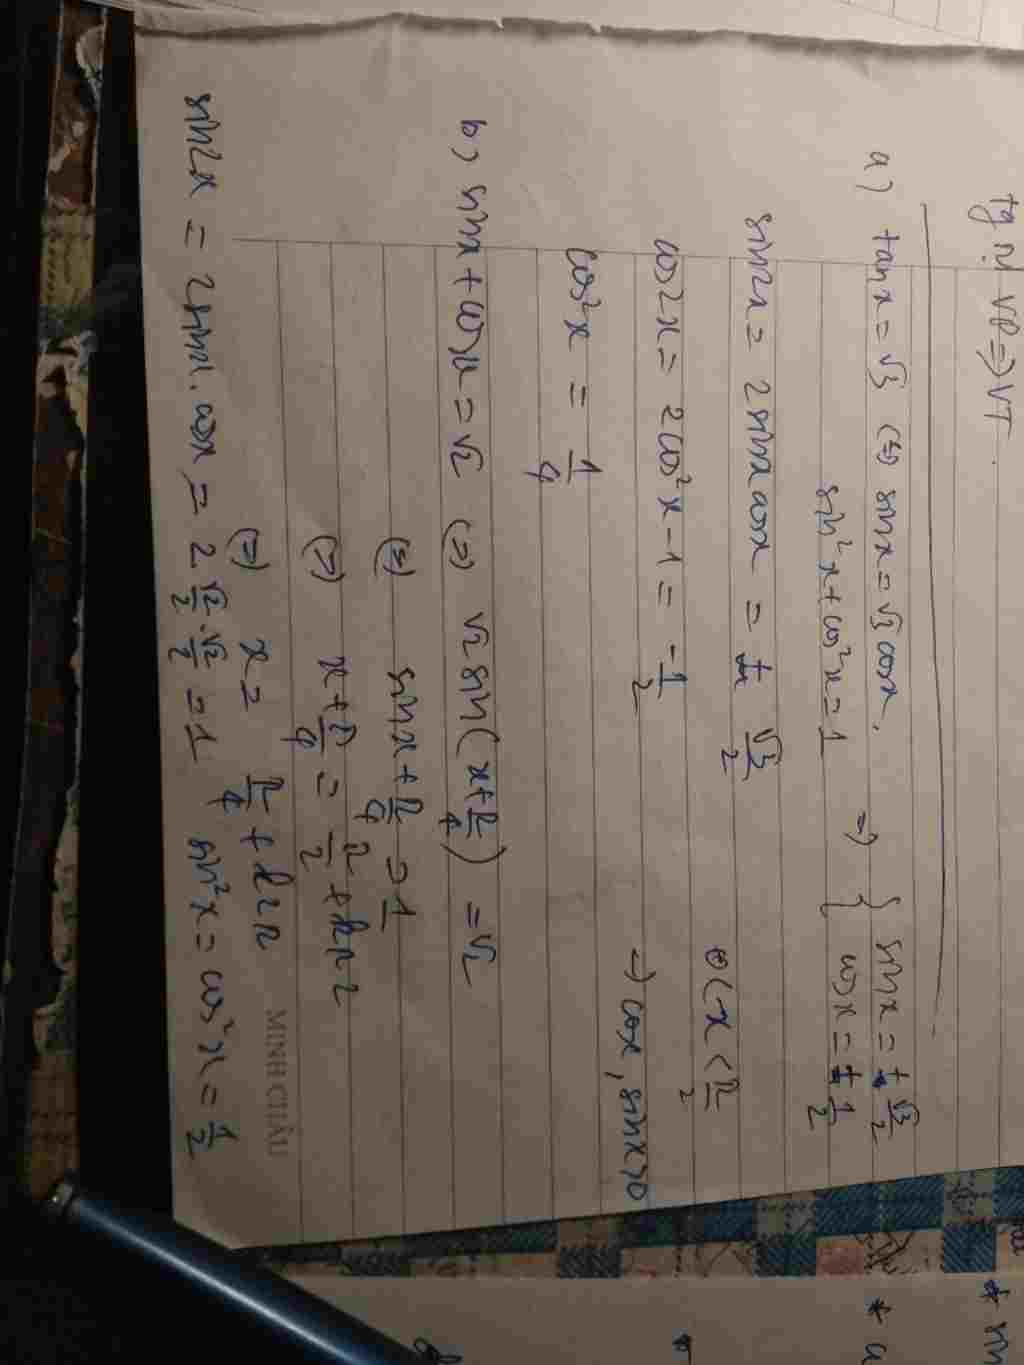 tg n! VP => VT.
a) tan x = √3 (=) sin x = √3 cos x. => { sin x = ± √3/2
sin²x + cos²x = 1 { cos x = ± 1/2
sin2x = 2 sin x cos x = ± √3/2
0 < x < π/2
cos2x = 2cos²x - 1 = -1/2
=> cos x, sin x > 0
cos²x = 1/4
b) sin x + cos x = √2 (=) √2 sin(x + π/4) = √2
(=) sin x + π/4 = 1
(=) x + π/4 = π/2 + kπ2
(=) x = π/4 + k2π
sin2x = 2 sin x . cos x = 2 √2/2 . √2/2 = 1 sin²x = cos²x = 1/2
MINH CHÂU
* sin
* a